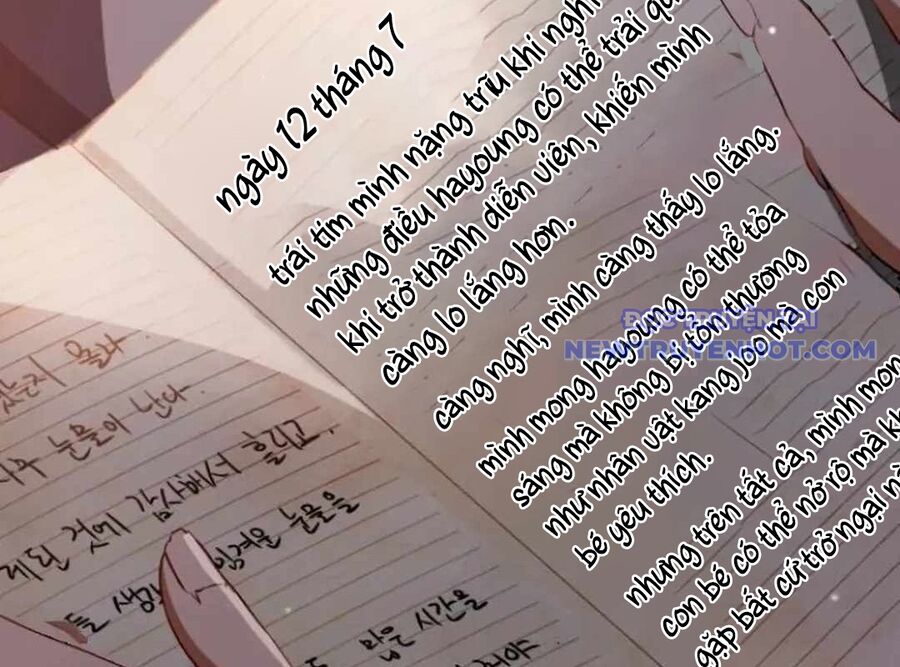 ngày 12 tháng 7
trái tim mình nặng trĩu khi nghĩ
những điều hayoung có thể trải qua
khi trở thành diễn viên, khiến mình
càng lo lắng hơn.
càng nghĩ, mình càng thấy lo lắng.
mình mong hayoung có thể tỏa
sáng mà không bị tổn thương
như nhân vật kang joo mà con
bé yêu thích.
nhưng trên tất cả, mình mong
con bé có thể nở rộ mà
gặp bất cứ trở ngại
NEWTRUYENHOT.COM
몰라
눈물이 난다
것에 감사해서 흘리고
눈물을
많은 시간을